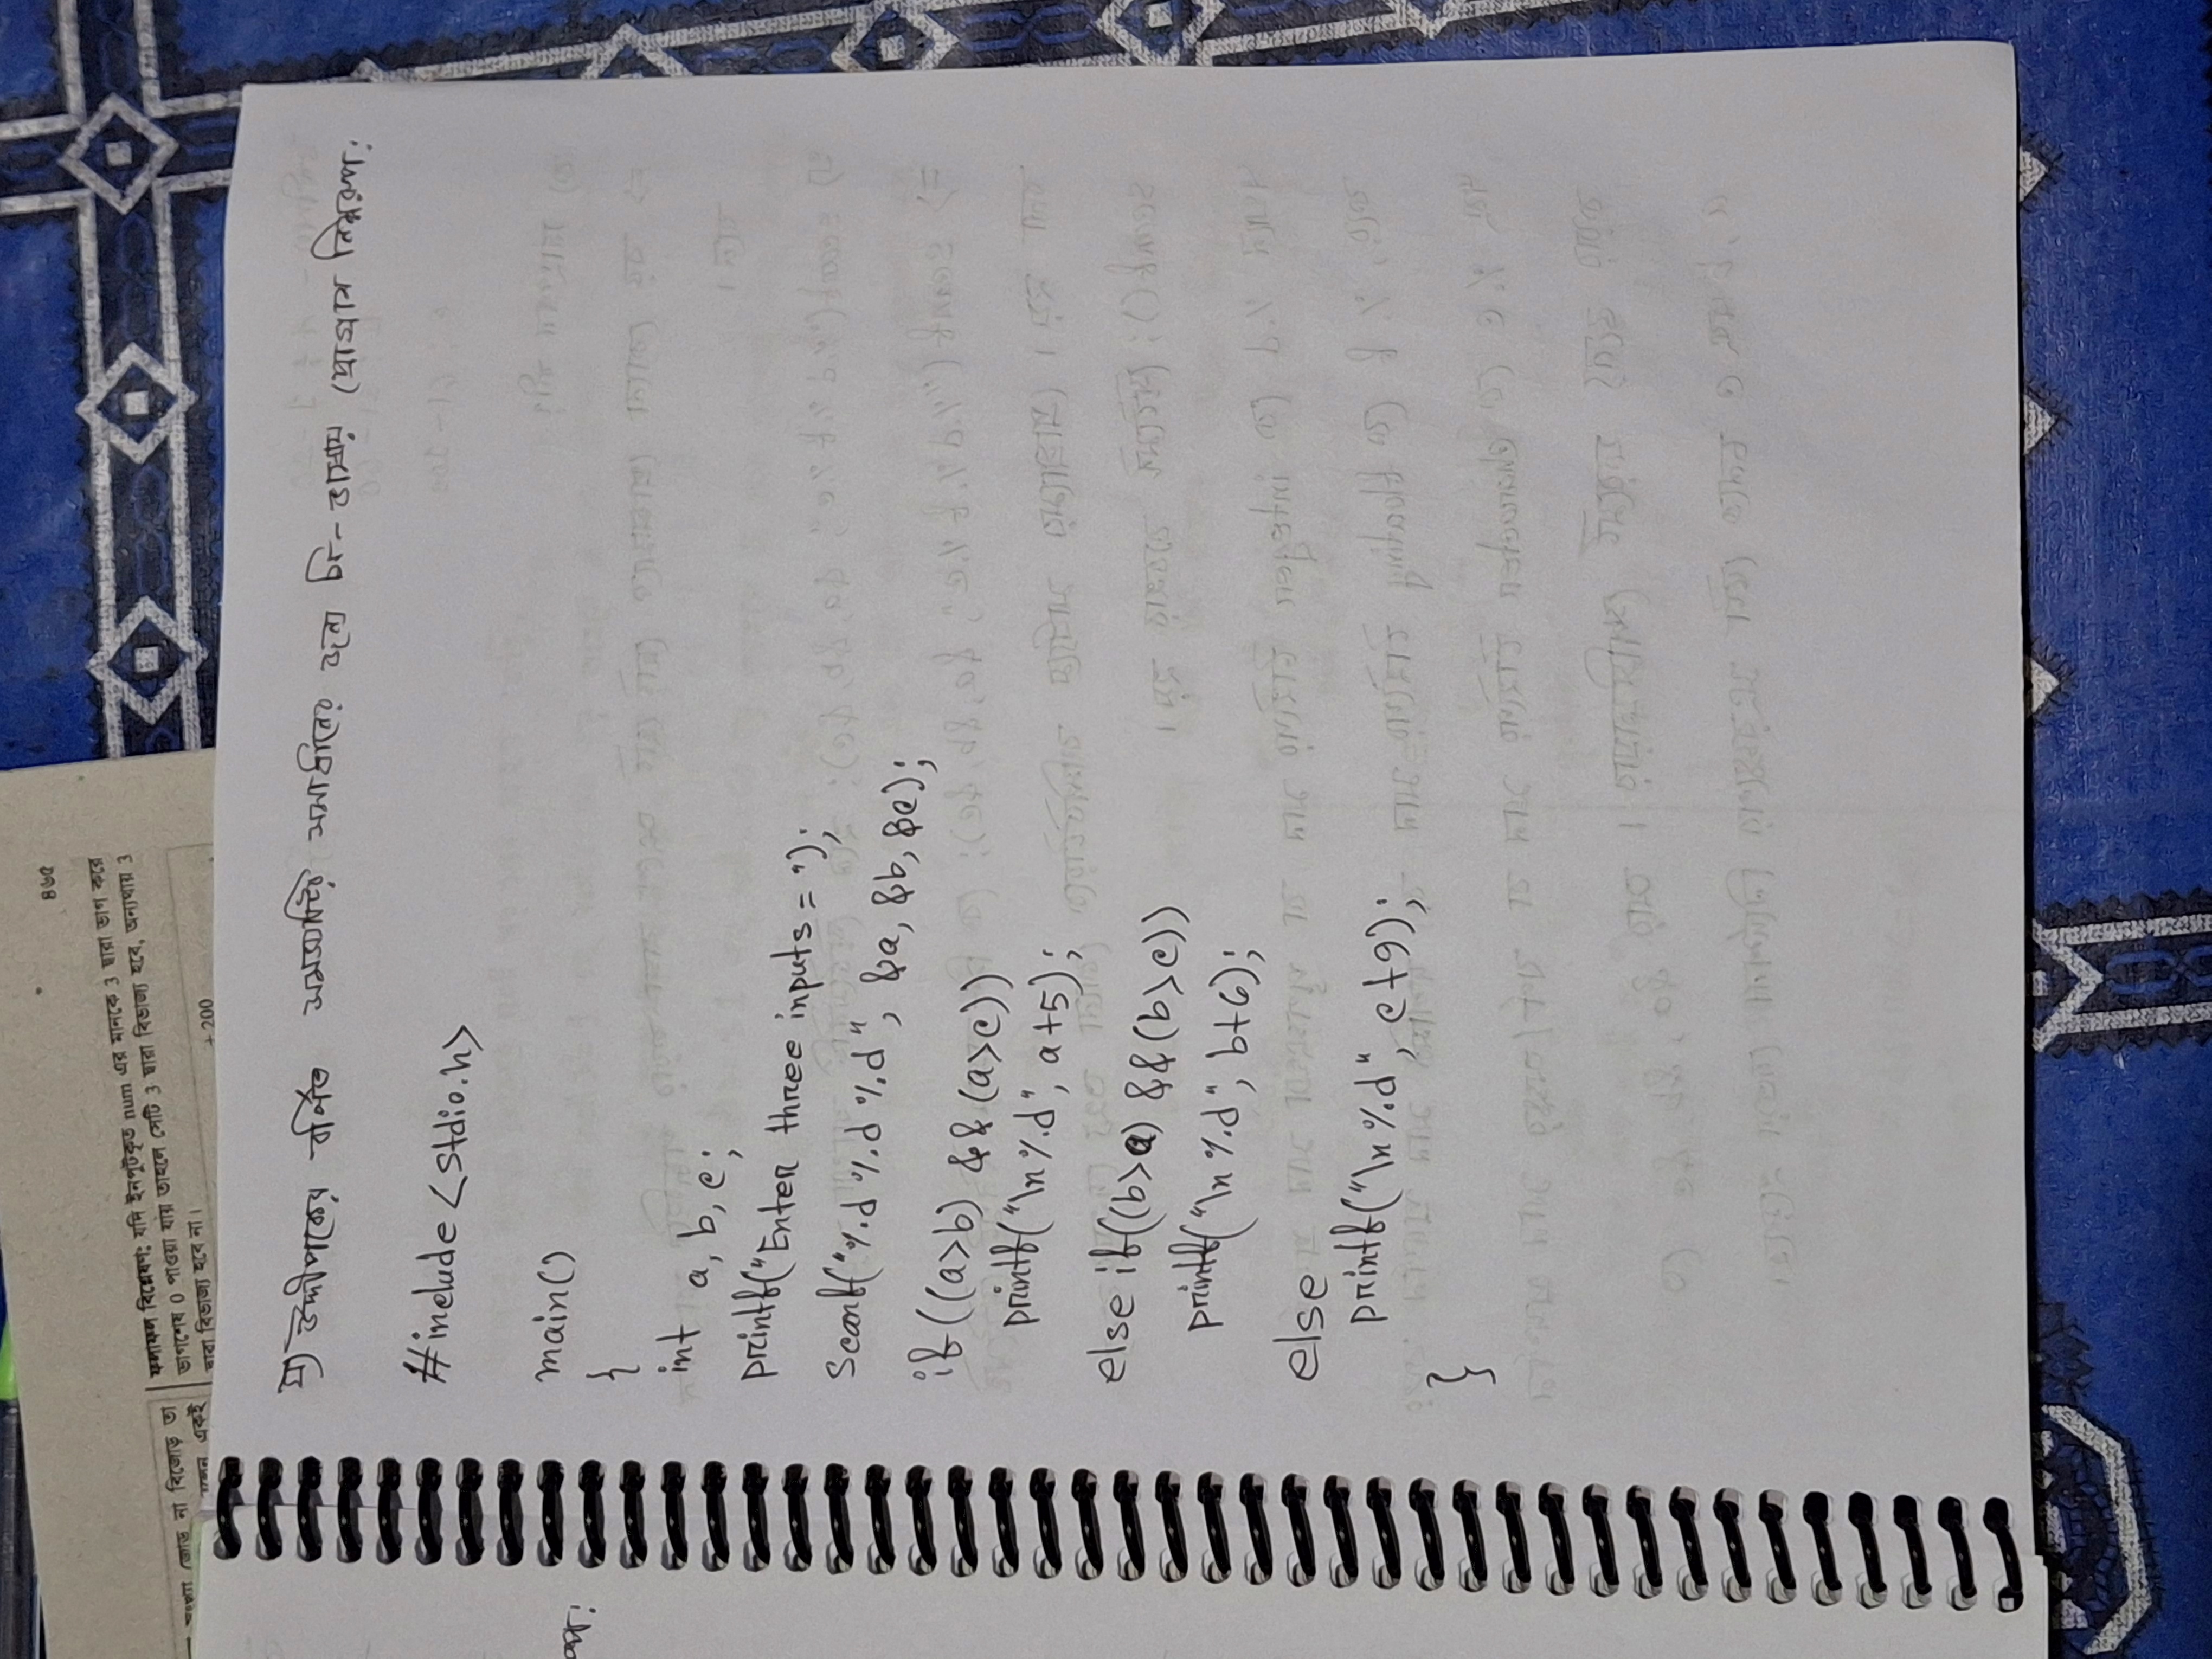 ৪৬৫
ফলাফল বিশ্লেষণ: যদি ইনপুটকৃত num এর মানকে 3 দ্বারা ভাগ করে
ভাগশেষ 0 পাওয়া যায় তাহলে সেটি 3 দ্বারা বিভাজ্য হবে, অন্যথায় 3
দ্বারা বিভাজ্য হবে না।
জোড় না বিজোড় তা
একই
+ 200
ঘ) উদ্দীপকের বর্ণিত সমস্যাটির সমাধানের জন্য সি-ভাষায় প্রোগ্রাম নিম্নরূপ:
#include <stdio.h>
main()
{
int a, b, c;
printf("Enter three inputs = ");
scanf("%d %d %d", &a, &b, &c);
if((a>b) && (a>c))
printf("\n %d", a+5);
else if((b>a) && (b>c))
printf("\n %d", b+6);
else
printf("\n %d", c+9);
}